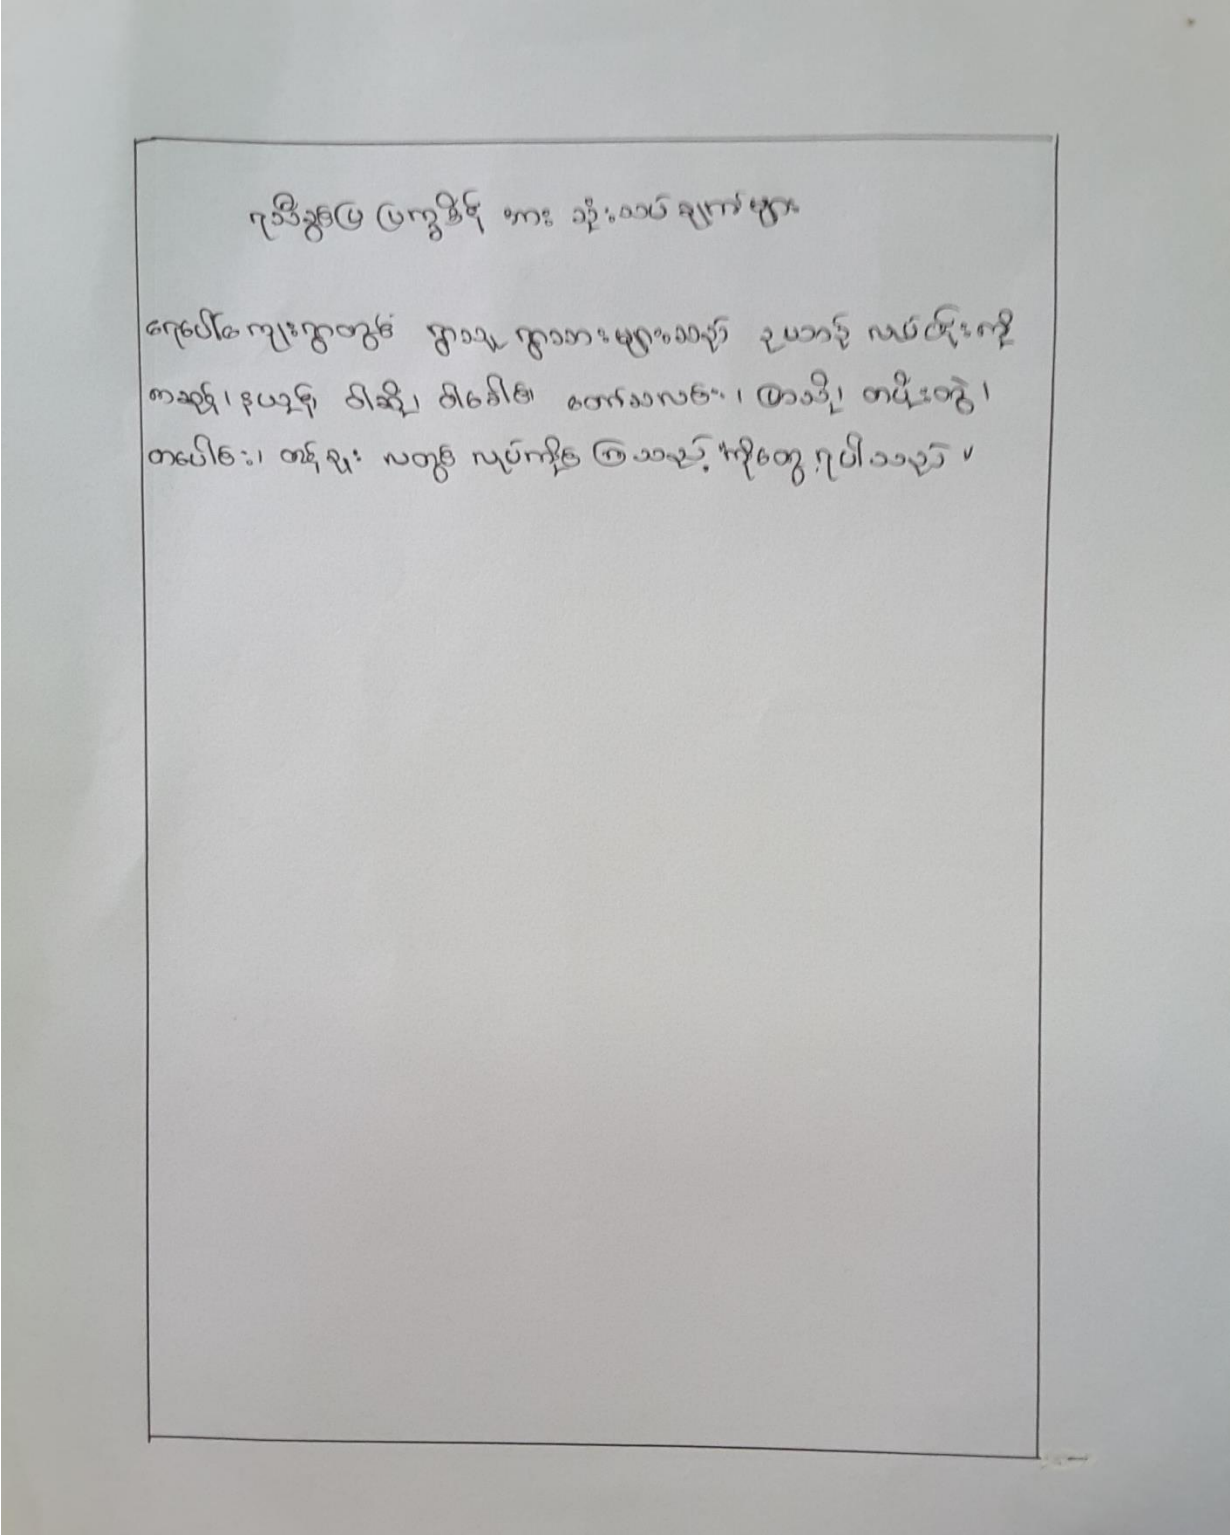 ရာသီခွင်ပြ ပြက္ခဒိန် အား သုံးသပ်ချက်များ
ရေပေါ်ကျေးရွာတွင် ရွာသူ ရွာသားများသည် ဥယာဉ် လုပ်ငန်းကို
တဆုန်၊ နယုန်၊ ဝါဆို၊ ဝါခေါင်၊ တော်သလင်း၊ ပြာသို၊ တပို့တွဲ၊
တပေါင်း၊ တန်ခူး လတွင် လုပ်ကိုင် ကြသည် ကိုတွေ့ရပါသည်။